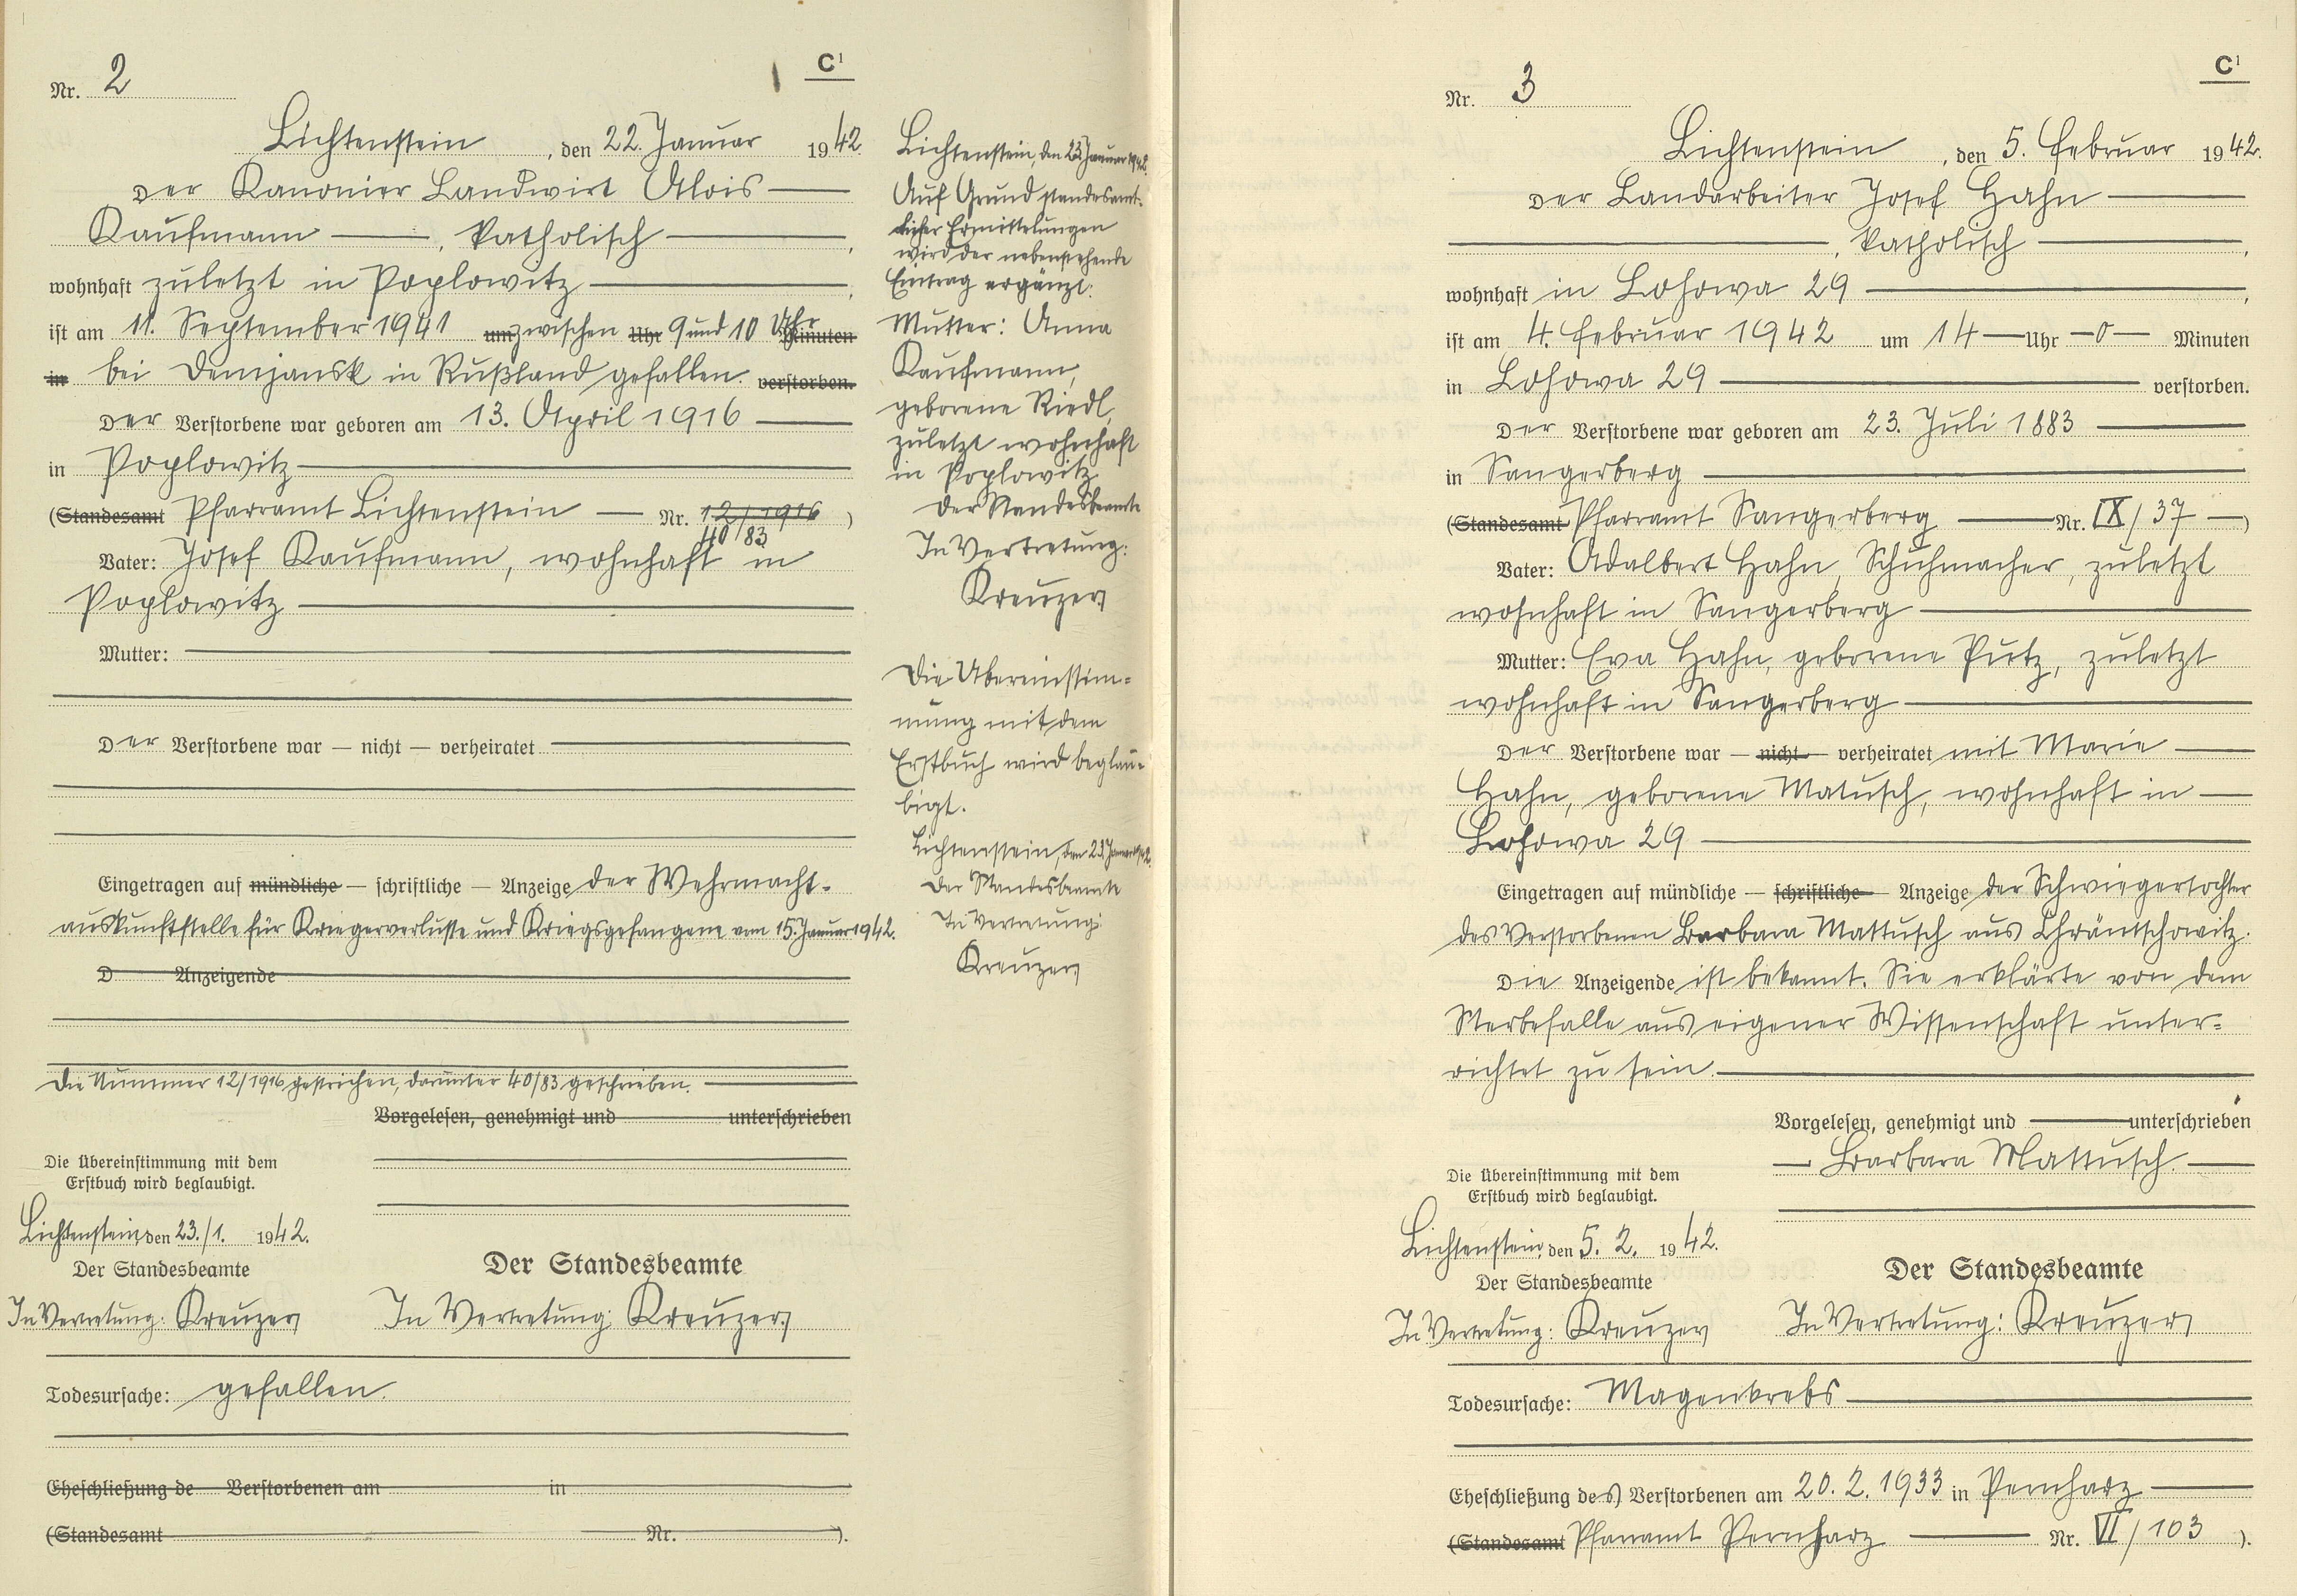 C¹
Nr. 2
Lichtenstein, den 22. Januar 1942.
Der Kanonier Landwirt Alois
Kaufmann, katholisch,
wohnhaft zuletzt in Poplowitz,
ist am 11. September 1941 um zwischen Uhr 9 und 10 Uhr Minuten
in bei Demjansk in Rußland gefallen. verstorben.
Der Verstorbene war geboren am 13. April 1916
in Poplowitz
(Standesamt Pfarramt Lichtenstein — Nr. 12/1916 )
40/83
Vater: Josef Kaufmann, wohnhaft in
Poplowitz
Mutter:
Der Verstorbene war — nicht — verheiratet
Eingetragen auf mündliche — schriftliche — Anzeige der Wehrmacht-
auskunftstelle für Kriegerverluste und Kriegsgefangene vom 15. Januar 1942.
D Anzeigende
Die Nummer 12/1916 gestrichen, darunter 40/83 geschrieben.
Vorgelesen, genehmigt und unterschrieben
Die Übereinstimmung mit dem
Erstbuch wird beglaubigt.
Lichtenstein, den 23./1. 1942.
Der Standesbeamte
In Vertretung: Kreuzer
Der Standesbeamte
In Vertretung: Kreuzer
Todesursache: gefallen.
Eheschließung de Verstorbenen am in
(Standesamt Nr. ).
Lichtenstein, den 23. Januar 1942.
Auf Grund standesamt-
licher Ermittelungen
wird der nebenstehende
Eintrag ergänzt:
Mutter: Anna
Kaufmann,
geborene Riedl,
zuletzt wohnhaft
in Poplowitz
Der Standesbeamte
In Vertretung:
Kreuzer
Die Übereinstim=
mung mit dem
Erstbuch wird beglau=
bigt.
Lichtenstein, den 23. Januar 1942.
Der Standesbeamte
In Vertretung:
Kreuzer
C¹
Nr. 3
Lichtenstein, den 5. Februar 1942.
Der Landarbeiter Josef Hahn
, katholisch,
wohnhaft in Lohowa 29,
ist am 4. Februar 1942 um 14 Uhr 0 Minuten
in Lohowa 29 verstorben.
Der Verstorbene war geboren am 23. Juli 1883
in Sangerberg
(Standesamt Pfarramt Sangerberg — Nr. IX/37 —)
Vater: Adalbert Hahn, Schuhmacher, zuletzt
wohnhaft in Sangerberg
Mutter: Eva Hahn, geborene Putz, zuletzt
wohnhaft in Sangerberg
Der Verstorbene war — nicht — verheiratet mit Marie
Hahn, geborene Matusch, wohnhaft in
Lohowa 29
Eingetragen auf mündliche — schriftliche — Anzeige der Schwiegertochter
des Verstorbenen Barbara Mattusch aus Chräntschowitz.
Die Anzeigende ist bekannt. Sie erklärte von dem
Sterbefalle aus eigener Wissenschaft unter=
richtet zu sein.
Vorgelesen, genehmigt und unterschrieben
Barbara Mattusch.
Die Übereinstimmung mit dem
Erstbuch wird beglaubigt.
Lichtenstein, den 5. 2. 1942.
Der Standesbeamte
In Vertretung: Kreuzer
Der Standesbeamte
In Vertretung: Kreuzer
Todesursache: Magenkrebs
Eheschließung des Verstorbenen am 20. 2. 1933 in Pernharz
(Standesamt Pfarramt Pernharz — Nr. VI/103 ).